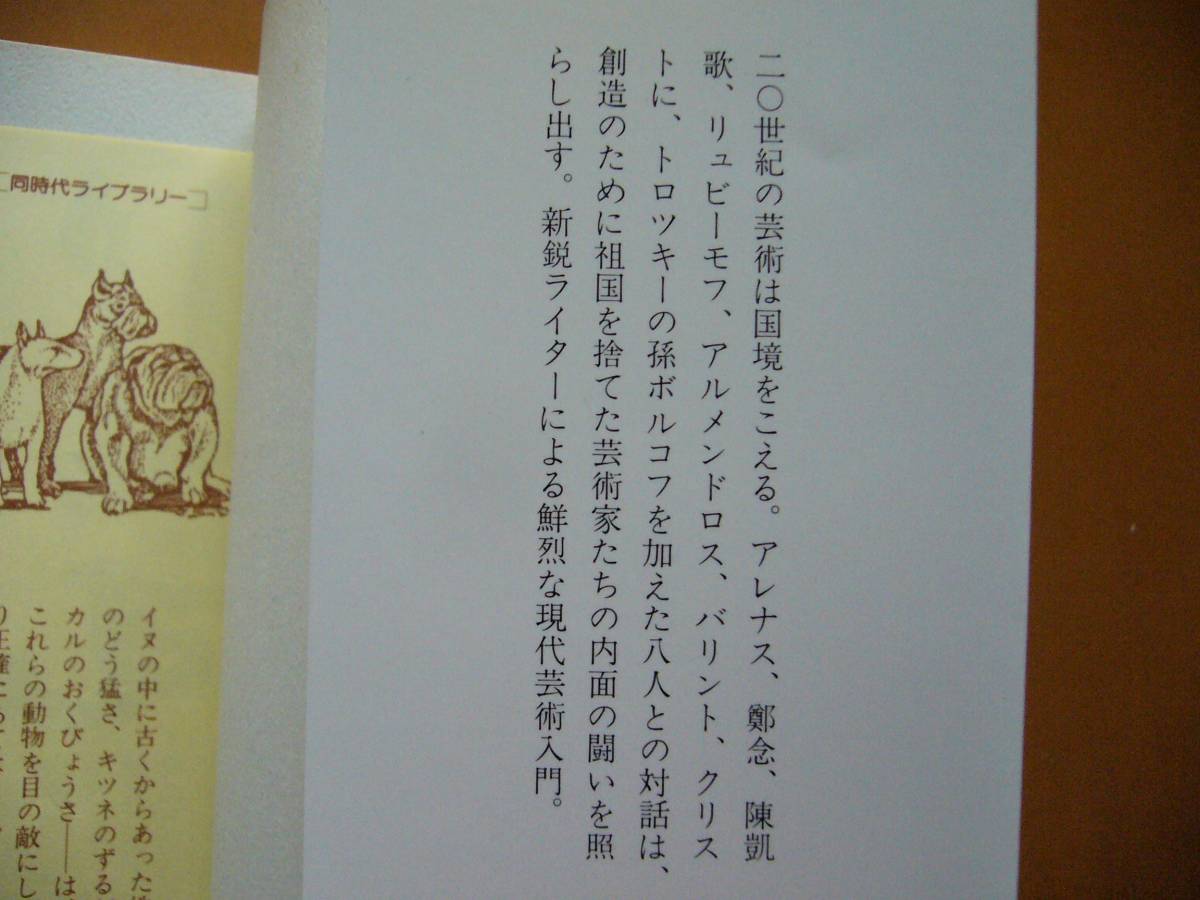 二〇世紀の芸術は国境をこえる。アレナス、鄭念、陳凱
歌、リュビーモフ、アルメンドロス、バリント、クリス
トに、トロツキーの孫ボルコフを加えた八人との対話は、
創造のために祖国を捨てた芸術家たちの内面の闘いを照
らし出す。新鋭ライターによる鮮烈な現代芸術入門。
[同時代ライブラリー]
イヌの中に古くからあった
のどう猛さ、キツネのずる
カルのおくびょうさ——は
これらの動物を目の敵にし